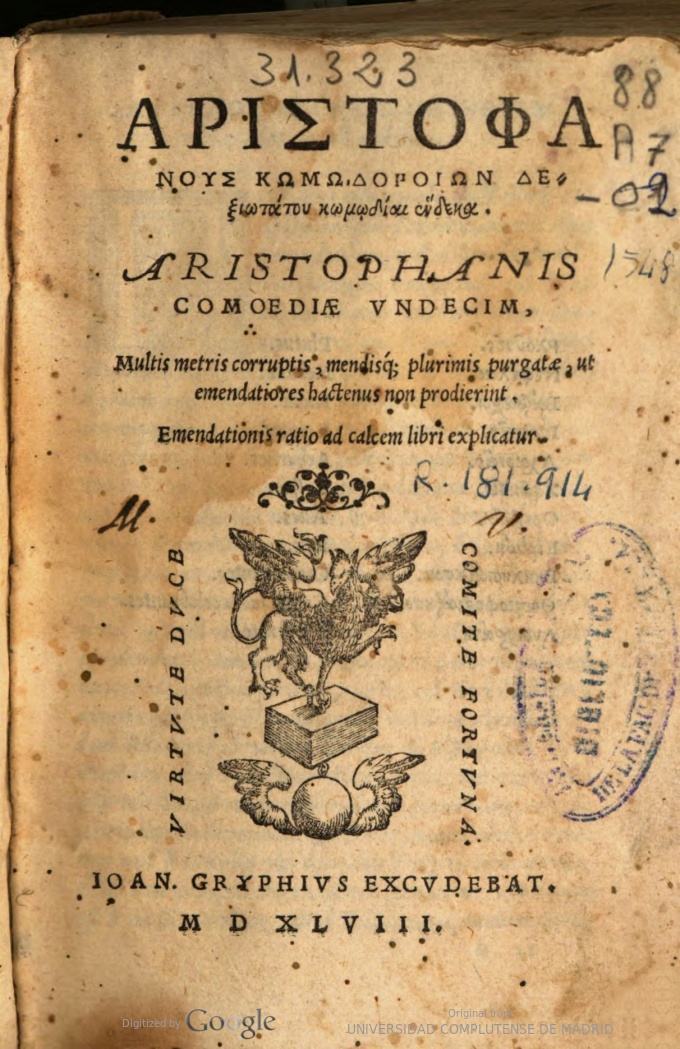 31.323
ΑΡΙΣΤΟΦΑ
88
A7
-02
ΝΟΥΣ ΚΩΜΩΔΟΡΟΙΩΝ ΔΕ-
ξιωτάτου κωμῳδίαι ἕνδεκα.
ARISTOPHANIS
1548
COMOEDIÆ VNDECIM,
Multis metris corruptis, mendisq́; plurimis purgatæ, ut
emendatiores hactenus non prodierint.
Emendationis ratio ad calcem libri explicatur.
R. 181.914
M. V.
VIRTVTE DVCE
COMITE FORTVNA.
BIBLIOTECA
DE LA FAC. DE
IOAN. GRYPHIVS EXCVDEBAT.
M D XLVIII.
Digitized by Google
Original from
UNIVERSIDAD COMPLUTENSE DE MADRID